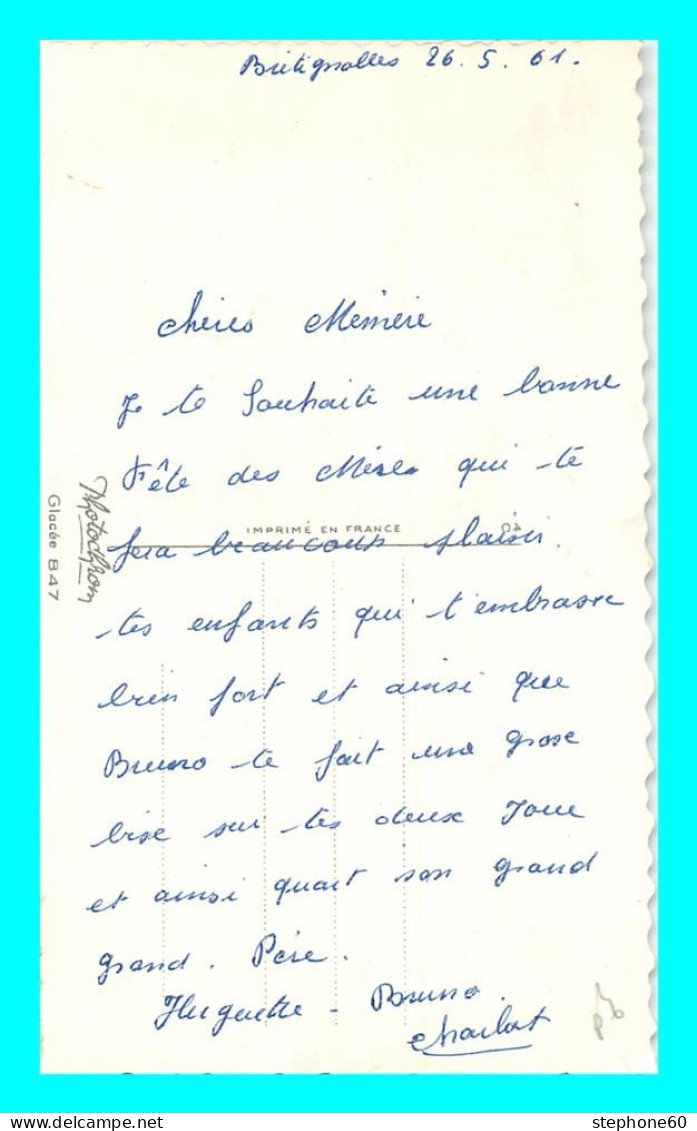 Bretignolles 26.5.61.
chères Mémère
Je te souhaite une bonne
Fête des Mères qui te
IMPRIMÉ EN FRANCE
fera beaucoup plaisir.
Photochrom
Glacée 847
tes enfants qui t'embrasse
bien fort et ainsi que
Bruno te fait une grose
bise sur tes deux Joue
et ainsi quart son grand
grand. Père.
Huguette - Bruno
Charlot
stephone60